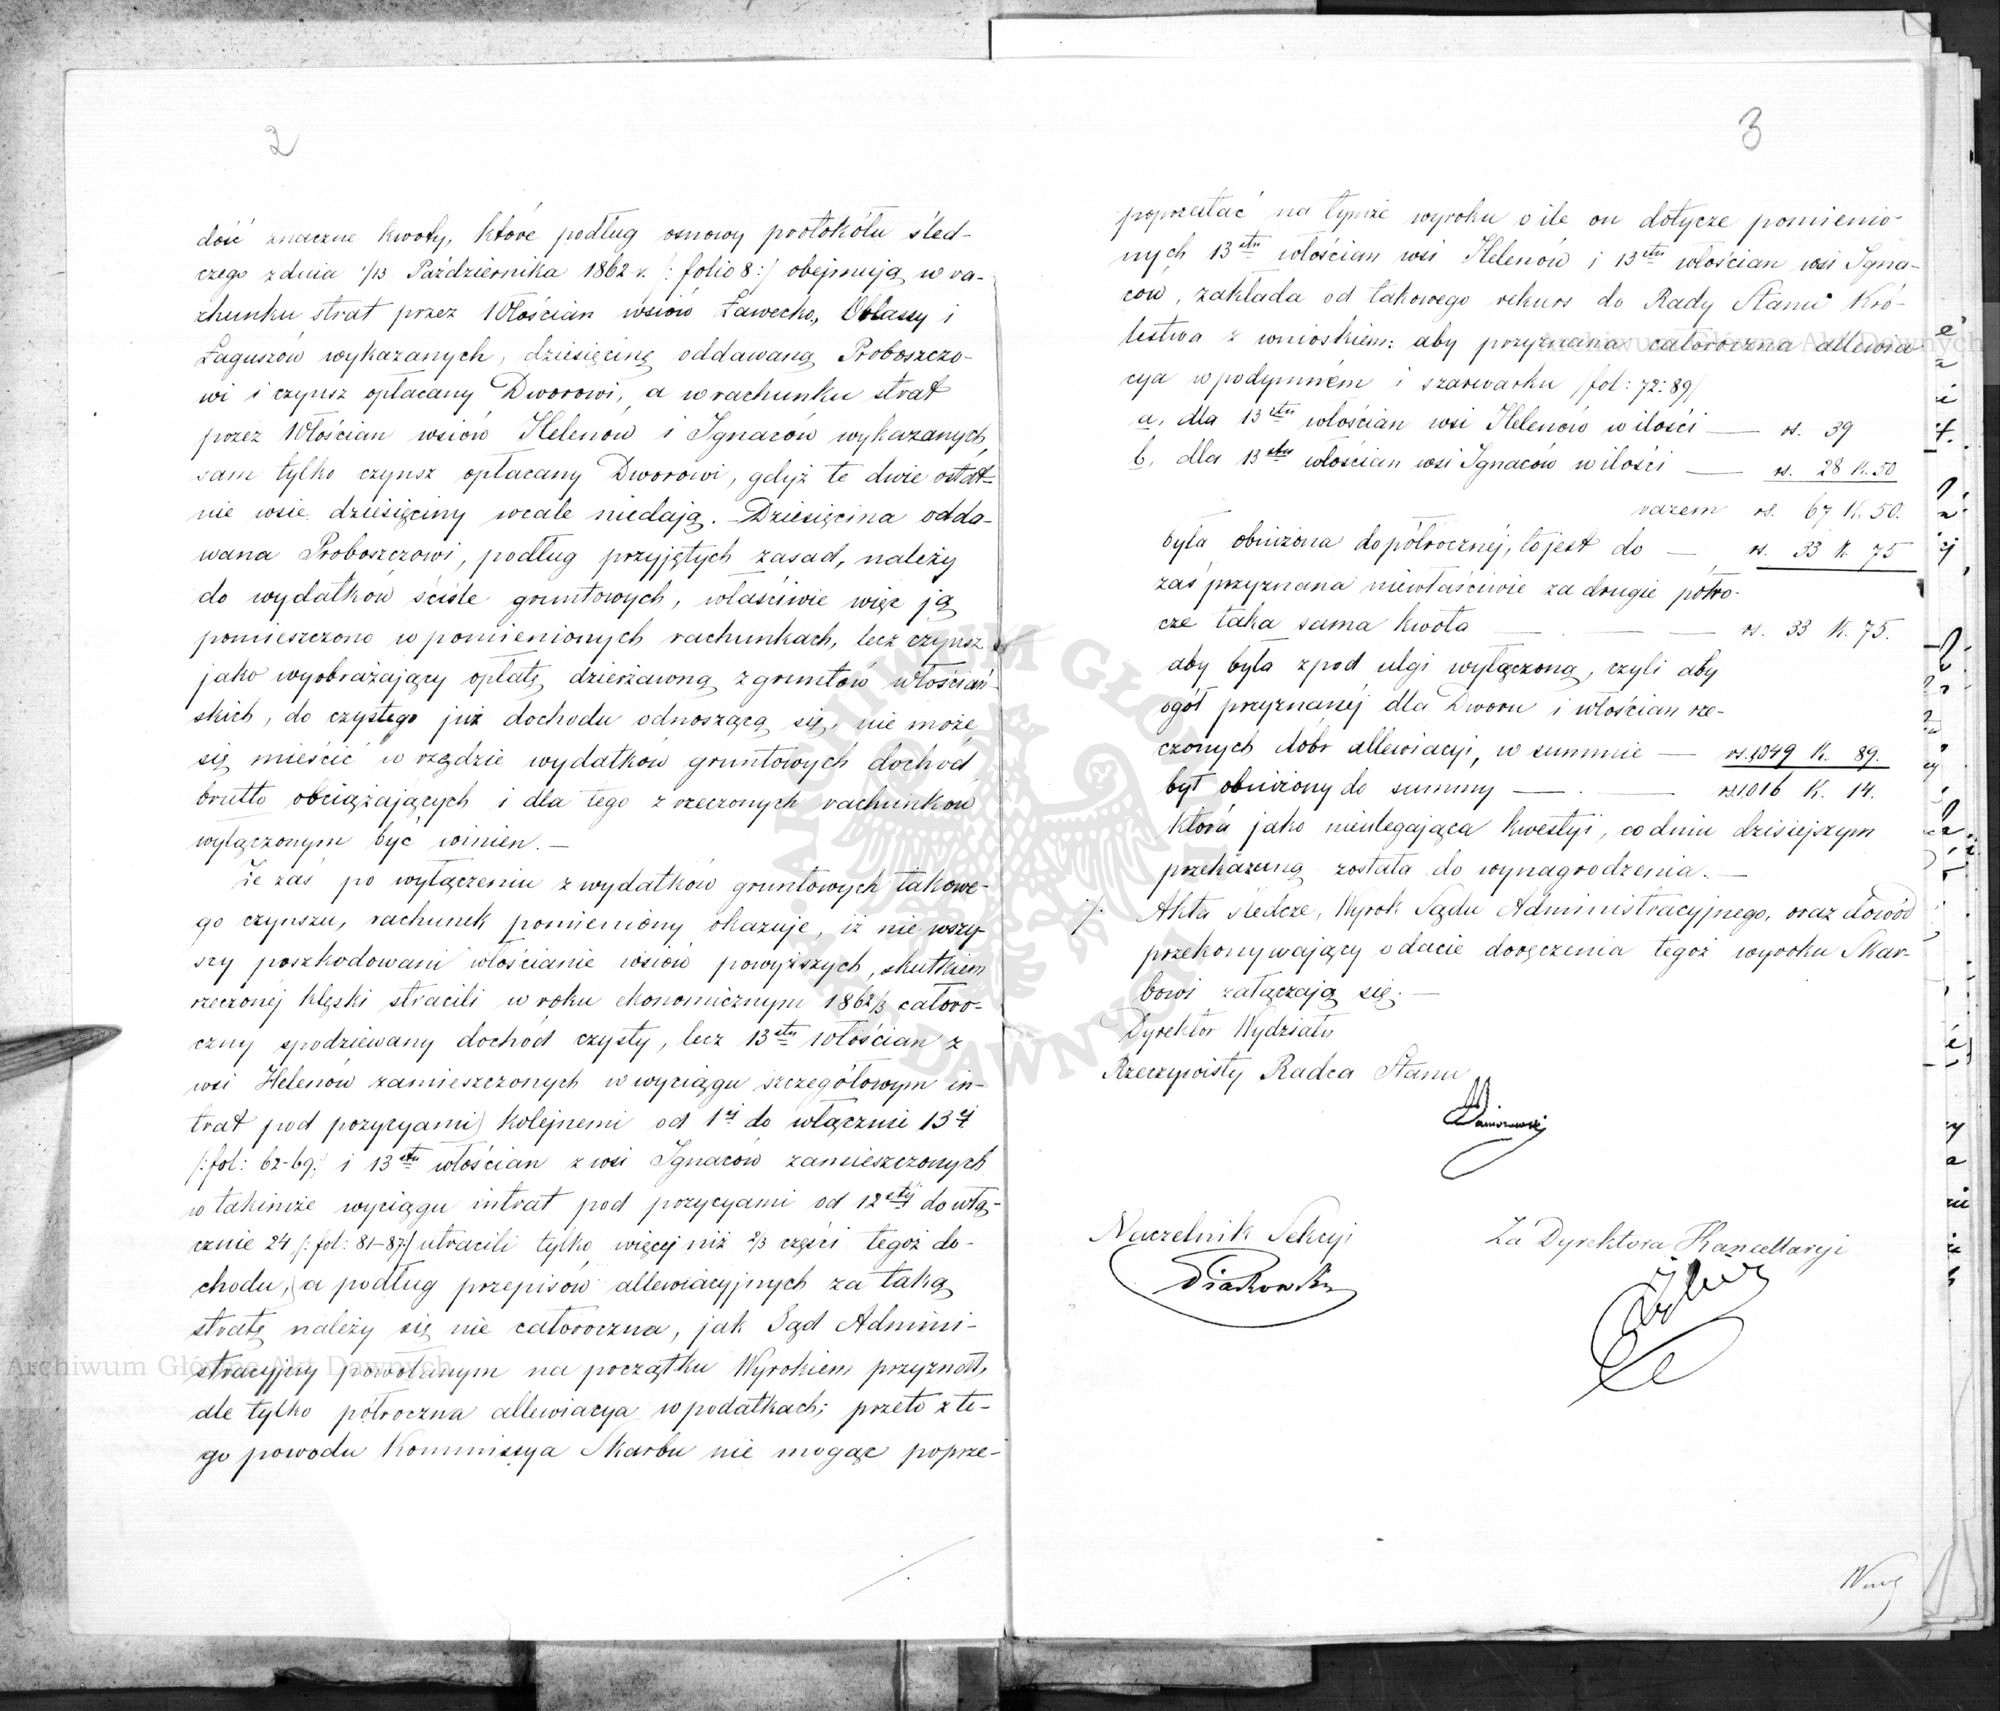 2
dość znaczne kwoty, które podług osnowy protokółu śled-
czego z dnia 1/13 Października 1862 r. /: folio 8 :/ obejmują w ra-
chunku strat przez Włościan wsiów Ławecko, Oblassy i
Łaguszów wykazanych, dziesięcinę oddawaną Proboszczo-
wi i czynsz opłacany Dworowi, a w rachunku strat
przez Włościan wsiów Helenów i Ignaców wykazanych,
sam tylko czynsz opłacany Dworowi, gdyż te dwie ostat-
nie wsie dziesięciny wcale niedają. – Dziesięcina odda-
wana Proboszczowi, podług przyjętych zasad, należy
do wydatków ściśle gruntowych, właściwie więc ją
pomieszczono w pomienionych rachunkach, lecz czynsz
jako wyobrażający opłatę dzierżawną z gruntów włościań-
skich, do czystego już dochodu odnoszącą się, nie może
się mieścić w rzędzie wydatków gruntowych dochód
brutto obciążających i dla tego z rzeczonych rachunków
wyłączonym być winien. –
Że zaś po wyłączeniu z wydatków gruntowych takowe-
go czynszu, rachunek pomieniony okazuje, iż nie wszy-
scy poszkodowani włościanie wsiów powyższych, skutkiem
rzeczonej klęski stracili w roku ekonomicznym 1862/3 całoro-
czny spodziewany dochód czysty, lecz 13stu włościan z
wsi Helenów zamieszczonych w wyciągu szczegółowym in-
trat pod pozycyami kolejnemi od 1ej do włącznie 13ej
/: fol: 62-69 :/ i 13stu włościan z wsi Ignaców zamieszczonych
w takimże wyciągu intrat pod pozycyami od 12stej do włą-
cznie 24 /: fol: 81-87 :/ utracili tylko więcej niż 2/3 części tegoż do-
chodu, a podług przepisów allewiacyjnych za taką
stratę należy się nie całoroczna, jak Sąd Admini-
stracyjny powołanym na początku Wyrokiem przyznał,
ale tylko półroczna allewiacya w podatkach; przeto z te-
go powodu Kommissya Skarbu nie mogąc poprze-
3
poprzestać na tymże wyroku o ile on dotycze pomienio-
nych 13stu włościan wsi Helenów i 13stu włościan wsi Igna-
ców, zakłada od takowego rekurs do Rady Stanu Kró-
lestwa z wnioskiem: aby przyznana całoroczna allewia-
cya w podymném i szarwarku /fol: 72: 89/
a, dla 13stu włościan wsi Helenów w ilości — rs. 39
b, dla 13stu włościan wsi Ignaców w ilości — rs. 28 K. 50
razem rs. 67 K. 50.
była obniżona do półrocznej, to jest do — rs. 33 K. 75
zaś przyznana niewłaściwie za drugie półro-
cze taka sama kwota — rs. 33 K. 75.
aby była z pod ulgi wyłączoną, czyli aby
ogół przyznanéj dla Dworu i włościan rze-
czonych dóbr allewiacyi, w summie — rs. 1049 K. 89.
był obniżony do summy — rs. 1016 K. 14.
która jako nieulegająca kwestyi, co dniu dzisiejszym
przekazaną została do wynagrodzenia. –
·/· Akta śledcze, Wyrok Sądu Administracyjnego, oraz dowód
przekonywający o dacie doręczenia tegoż wyroku Skar-
bowi załączają się. –
Dyrektor Wydziału
Rzeczywisty Radca Stanu
Naczelnik Sekcyi
Piaskowski
Za Dyrektora Kancellaryi
Archiwum Główne Akt Dawnych
Archiwum Główne Akt Dawnych
ARCHIWUM GŁÓWNE AKT DAWNYCH